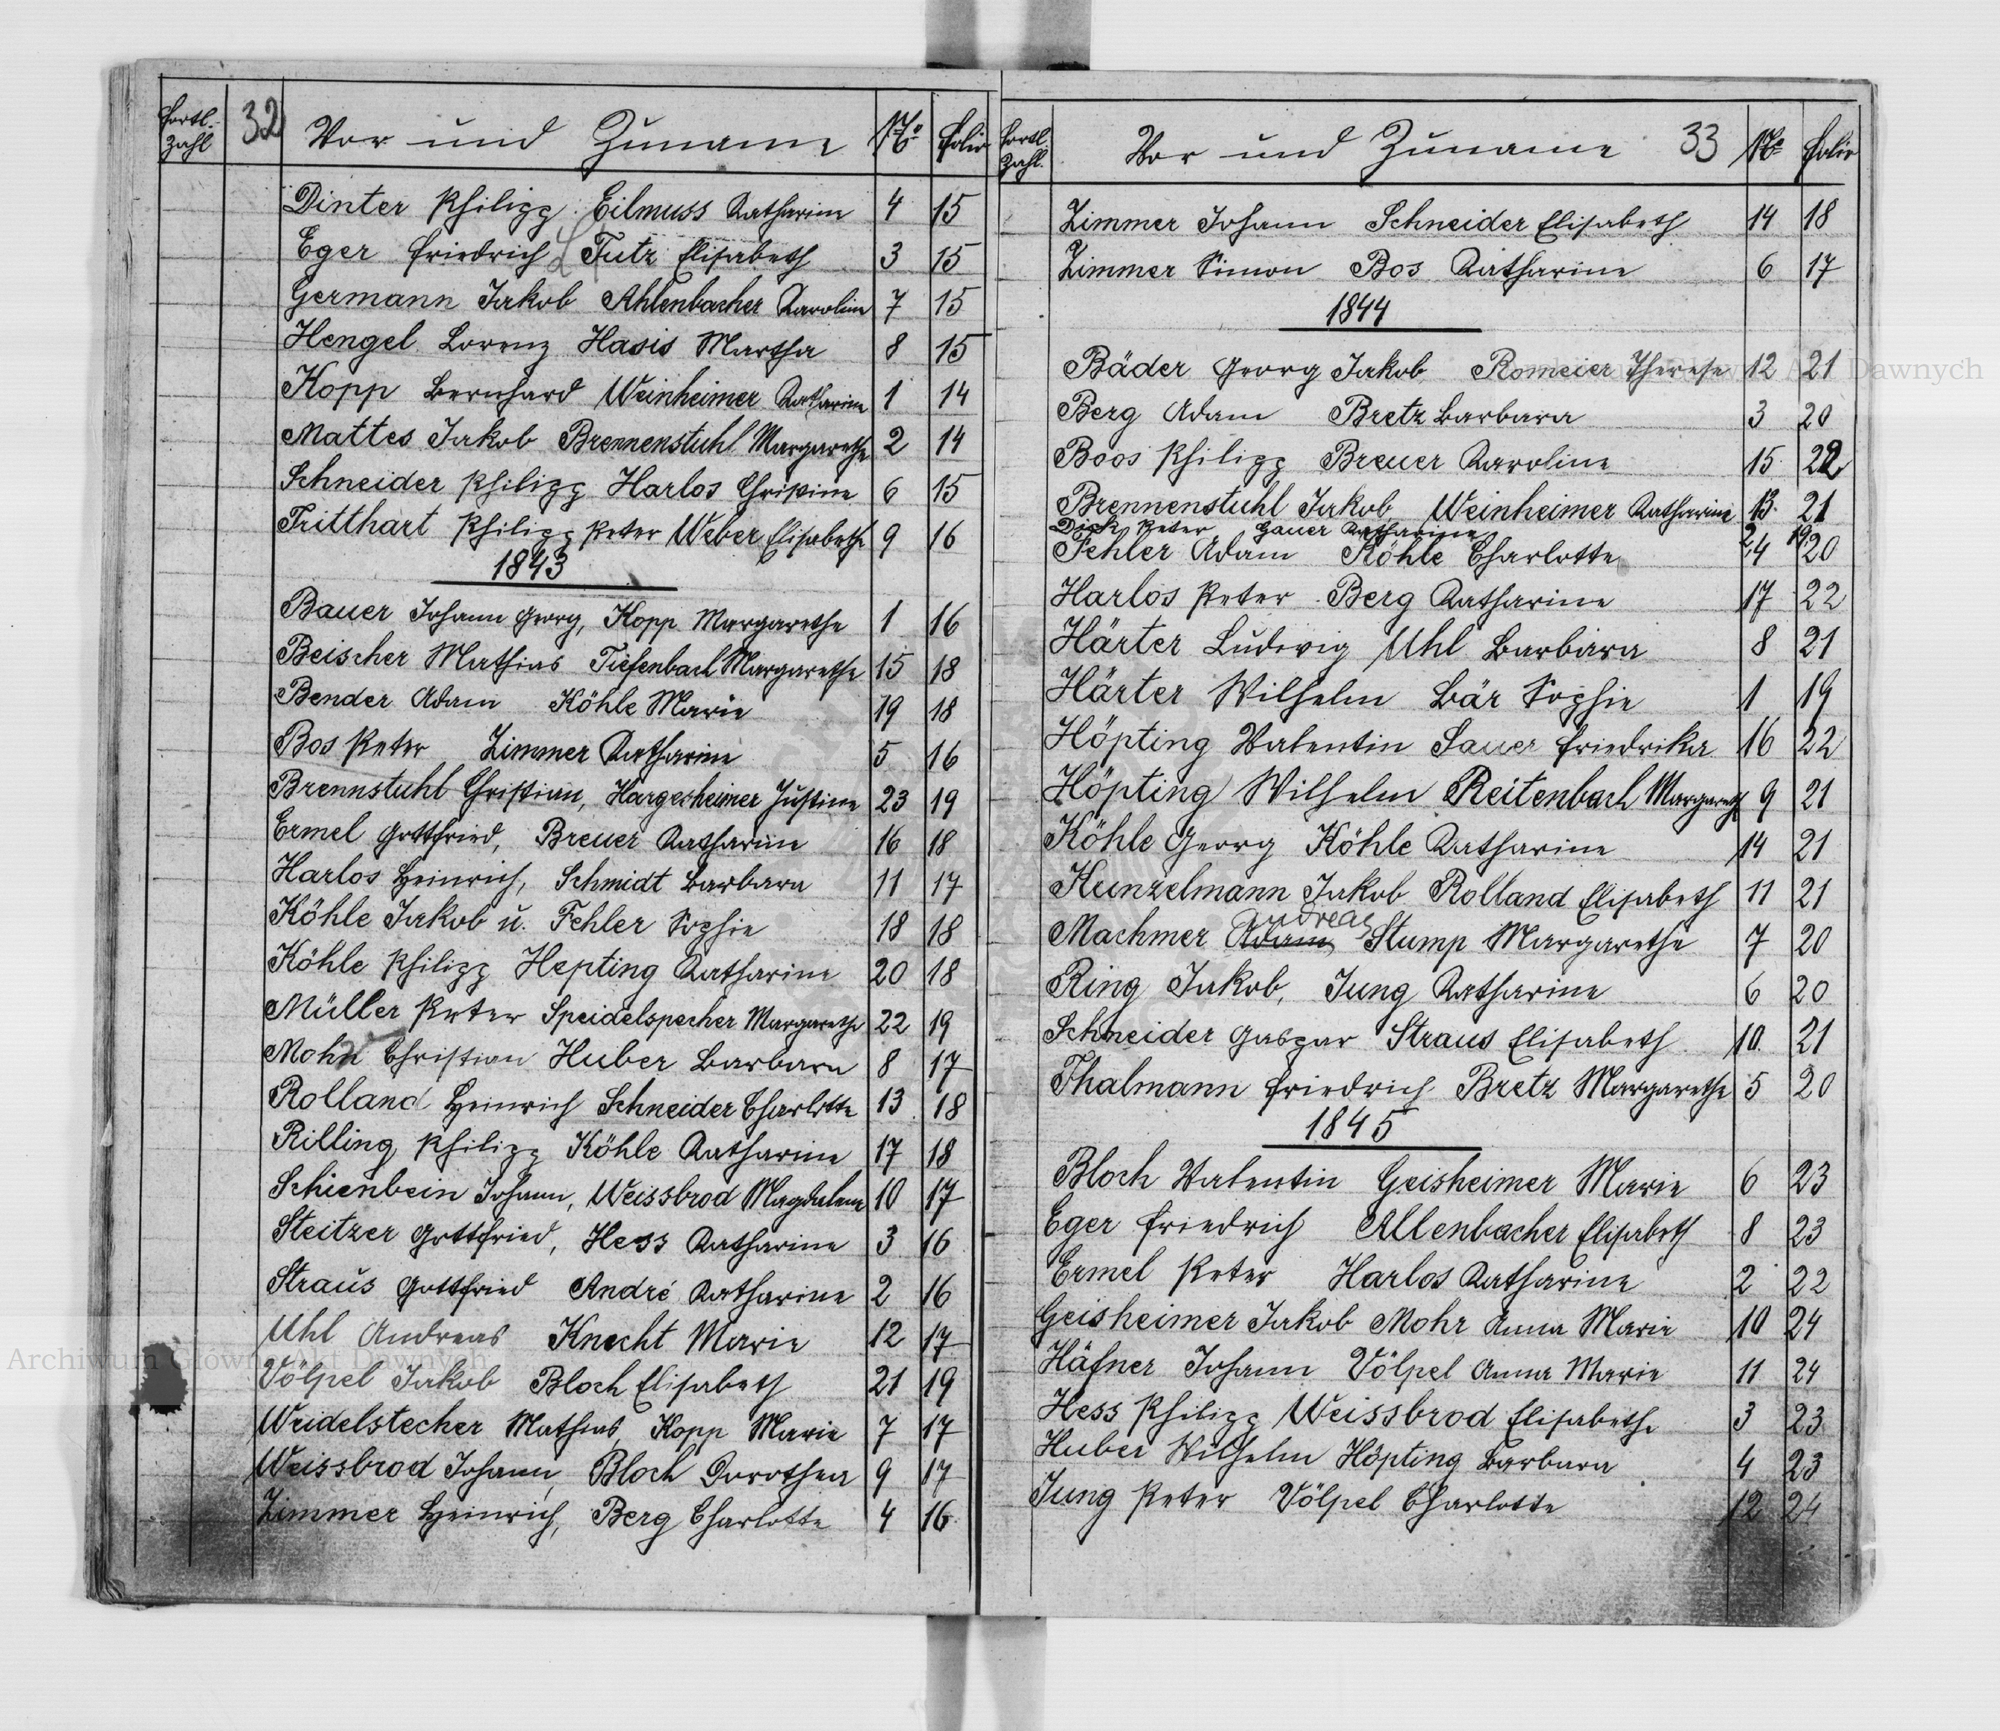 Fortl. Zahl 32 Vor und Zuname No Folio
Dinter Philipp Eilmuss Katharine 4 15
Eger Friedrich Futz Elisabeth 3 15
Germann Jakob Ahlenbacher Karoline 7 15
Hengel Lorenz Hasis Martha 8 15
Kopp Bernhard Weinheimer Katharine 1 14
Mattes Jakob Brennenstuhl Margarethe 2 14
Schneider Philipp Harlos Christine 6 15
Tritthart Philipp Peter Weber Elisabethe 9 16
1843
Bauer Johann Georg, Kopp Margarethe 1 16
Beischer Mathias Tiefenbach Margarethe 15 18
Bender Adam Köhle Marie 19 18
Bos Peter Zimmer Katharine 5 16
Brennstuhl Christian, Hargesheimer Justine 23 19
Ermel Gottfried, Breuer Katharine 16 18
Harlos Heinrich, Schmidt Barbara 11 17
Köhle Jakob u. Fehler Sophie 18 18
Köhle Philipp Hepting Katharine 20 18
Müller Peter Speidelspecher Margarethe 22 19
Mohr Christian Huber Barbara 8 17
Rolland Heinrich Schneider Charlotte 13 18
Rilling Philipp Köhle Katharine 17 18
Schienbein Johann, Weissbrod Magdalena 10 17
Steitzer Gottfried, Hess Katharine 3 16
Straus Gottfried André Katharine 2 16
Uhl Andreas Knecht Marie 12 17
Völpel Jakob Bloch Elisabeth 21 19
Weidelstecher Mathias, Kopp Marie 7 17
Weissbrod Johann, Bloch Dorothea 9 17
Zimmer Heinrich, Berg Charlotte 4 16
Fortl. Zahl. Vor und Zuname 33 No Folio
Zimmer Johann Schneider Elisabeth 14 18
Zimmer Simon Bos Katharine 6 17
1844
Bäder Georg Jakob Romeier Therese 12 21
Berg Adam Bretz Barbara 3 20
Boos Philipp Breuer Karoline 15 22
Brennenstuhl Jakob Weinheimer Katharine 13 21
Dick Peter Gauer Katharine 2 19
Fehler Adam Köhle Charlotte 4 20
Harlos Peter Berg Katharine 17 22
Härter Ludwig Uhl Barbara 8 21
Härter Wilhelm Bär Sophie 1 19
Höpting Valentin Sauer Friedrika 16 22
Höpting Wilhelm Reitenbach Margareth 9 21
Köhle Georg Köhle Katharine 14 21
Kunzelmann Jakob Rolland Elisabeth 11 21
Machmer Adam Andreas Stump Margarethe 7 20
Ring Jakob, Jung Katharine 6 20
Schneider Gaspar Straus Elisabeth 10 21
Thalmann Friedrich Bretz Margarethe 5 20
1845
Bloch Valentin Geisheimer Marie 6 23
Eger Friedrich Allenbacher Elisabeth 8 23
Ermel Peter Harlos Katharine 2 22
Geisheimer Jakob Mohr Anna Marie 10 24
Häfner Johann Völpel Anna Marie 11 24
Hess Philipp Weissbrod Elisabethe 3 23
Huber Wilhelm Höpting Barbara 4 23
Jung Peter Völpel Charlotte 12 24
Archiwum Główne Akt Dawnych